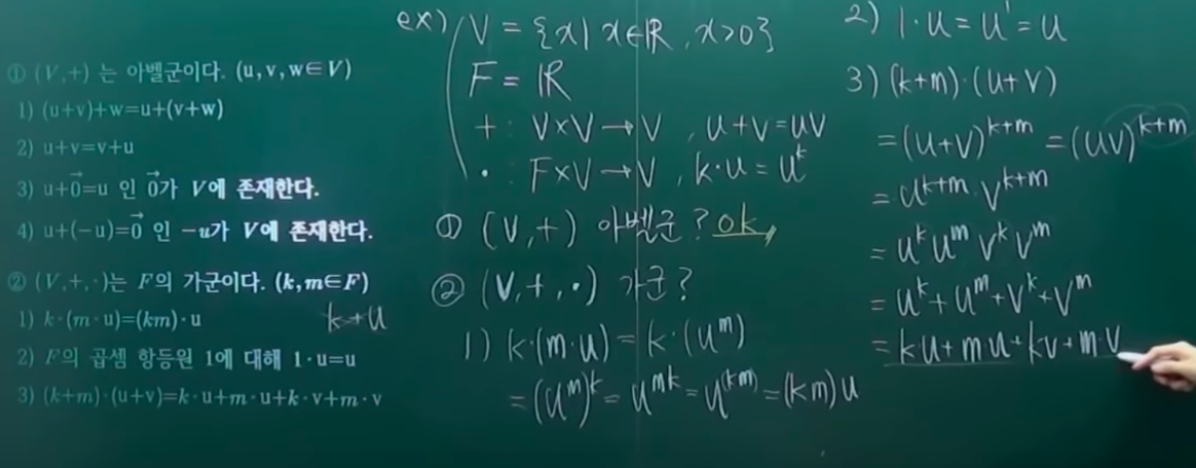 ① (V,+) 는 아벨군이다. (u,v,w∈V)
1) (u+v)+w=u+(v+w)
2) u+v=v+u
3) u+0⃗=u 인 0⃗가 V에 존재한다.
4) u+(-u)=0⃗ 인 -u가 V에 존재한다.
② (V,+,·)는 F의 가군이다. (k,m∈F)
1) k·(m·u)=(km)·u
k+u
2) F의 곱셈 항등원 1에 대해 1·u=u
3) (k+m)·(u+v)=k·u+m·u+k·v+m·v
ex) V = {x| x∈ℝ, x>0}
F = ℝ
+ : V×V→V , u+v=uv
· : F×V→V , k·u=uᵏ
① (V,+) 아벨군? ok
② (V,+,·) 가군?
1) k·(m·u) = k·(uᵐ)
=(uᵐ)ᵏ = uᵐᵏ = u⁽ᵏᵐ⁾ = (km)u
2) 1·u = u¹ = u
3) (k+m)·(u+v)
=(u+v)ᵏ⁺ᵐ =(uv)ᵏ⁺ᵐ
= uᵏ⁺ᵐ·vᵏ⁺ᵐ
= uᵏuᵐvᵏvᵐ
= uᵏ+uᵐ+vᵏ+vᵐ
= ku+mu+kv+m·v